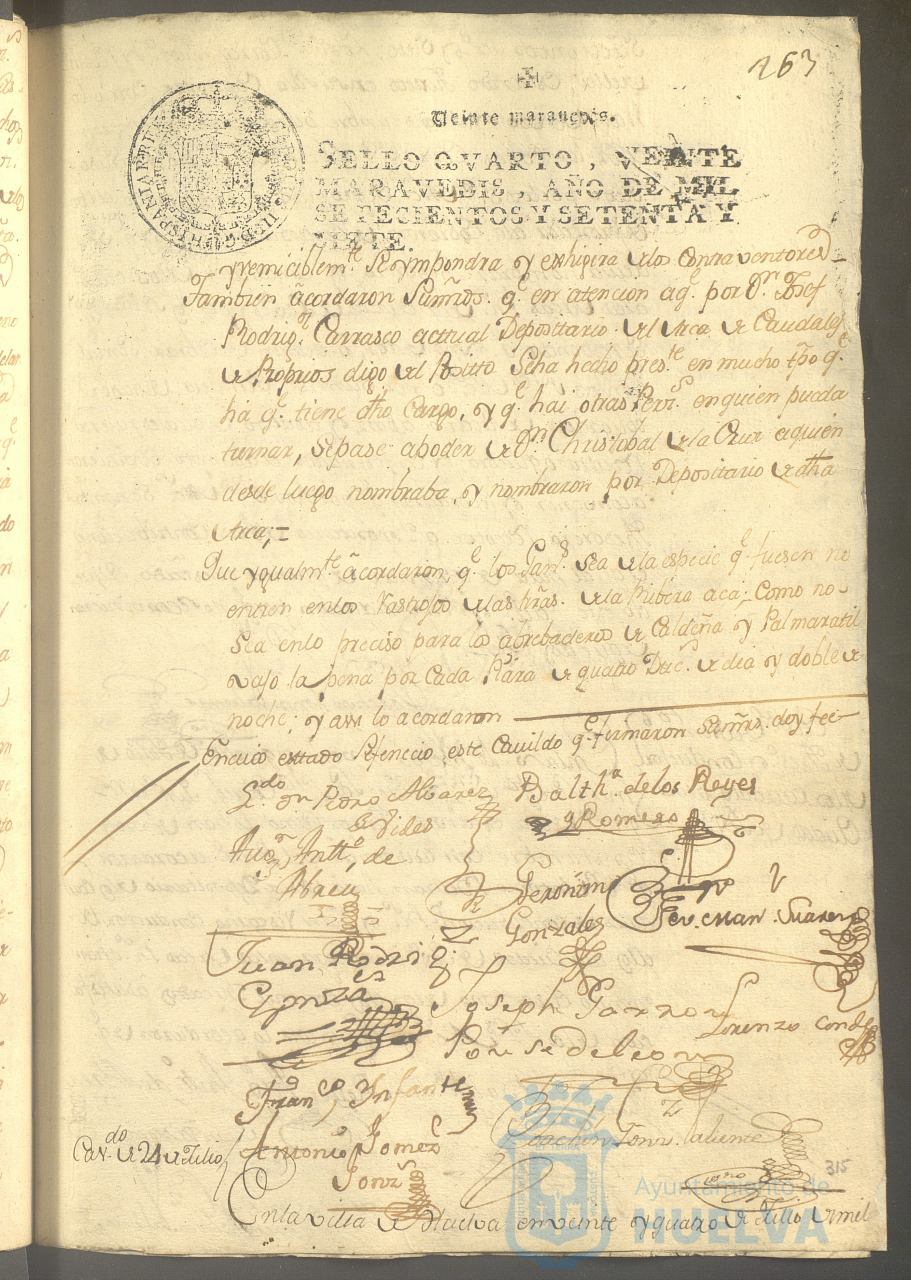 163
Veinte marauedis.
SELLO QVARTO, VEINTE
MARAVEDIS, AÑO DE MIL
SETECIENTOS Y SETENTA Y
SIETE.
yrremiciblemte. se ympondra y exhigira de los Contraventores
Tambien acordaron Sumrds. qe. en atencion aqe. por Dn. Josef
Rodrigz. Carrasco acttual Depositario del Arca de Caudales
de Propios digo del Positto Seha hecho preste. en mucho tpo qe.
ha qe. tiene dho Cargo, y qe. hai otras Pers. en quien pueda
turnar, sepase apoder de Dn. Christobal de la Cruz aquien
desde luego nombraba, y nombraron por Depositario de dha
Arca;
Que ygualmte. acordaron, qe. los Gans. sea de la especie qe. fuesen no
entren enlos Rastrojos de las thas. de la Ribera aca; Como no
Sea enlo preciso para los abrebaderos de Caldeña y Palmaratil
vajo la pena por Cada de quatro Duc. de dia y doble de
noche: y assi lo acordaron
En cuio estado Sefenecio, este Cavildo qe. firmaron Sumrds. doy fee
Ldo. Dn. Pedro Alvarez
de Vides
Baltha. delos Reyes
y Romero
Antto. de
Abreu
Geronimo
Gonzales
Suarez
Juan Rodrigz
Gonzales
Joseph Garzon
Ponse de leon
Lorenzo Conde
Franco. Infante
Antonio Gomez
Gonz
Joachin Gonz. laliente
Cavdo. de 24 de Julio
315
En la villa de Huelva en veinte y quatro de Julio de mil
Ayuntamiento de
HUELVA